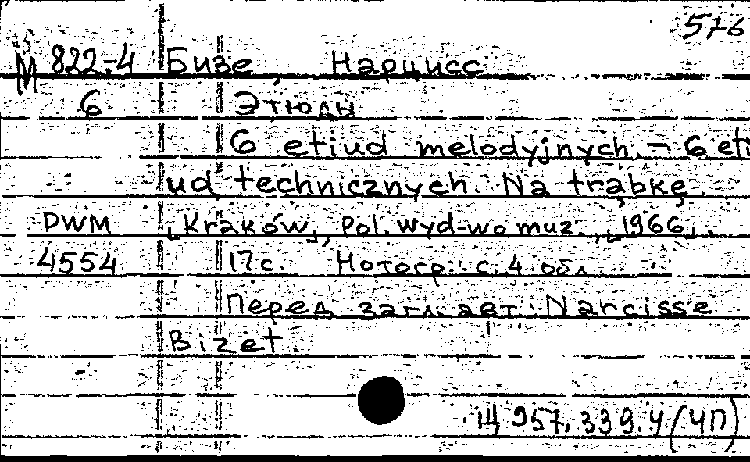 576
М 822-4 Бизе, Нарцисс
6 Этюды
6 etiud melodyjnych. – 6 eti
ud technicznych. Na trąbkę.
DWM [Kraków], Pol. wyd-wo muz., [1966].
4554 17 с. Нотогр. с. 4 обл.
Перед загл. авт. Narcisse
Bizet
14 957.339.4 (ЧП)